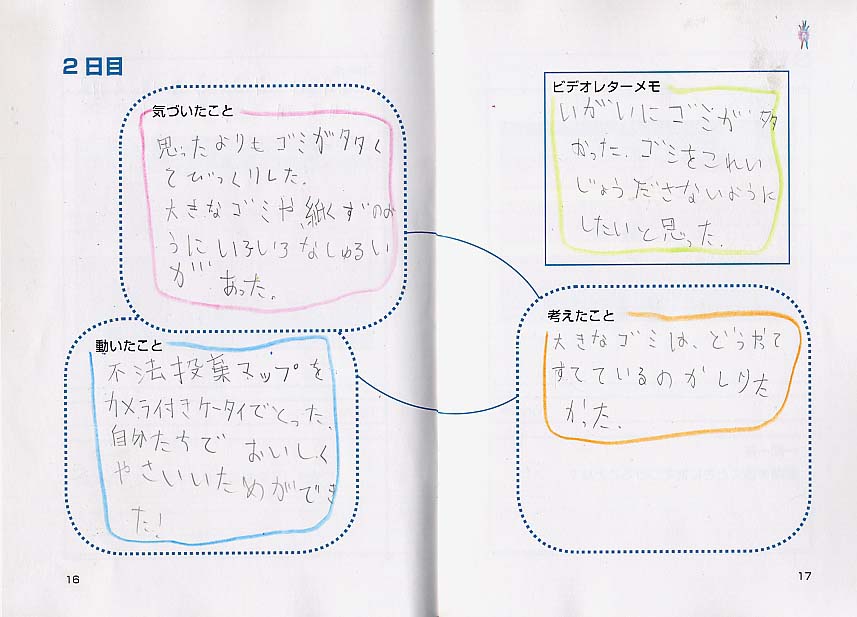 2日目
気づいたこと
思ったよりもゴミがタタく
てびっくりした。
大きなゴミや、紙くずのよ
うにいろいろなしゅるい
が あった。
動いたこと
不法投棄マップを
カメラ付きケータイでとった。
自分たちで おいしく
やさいいためができ
た!
16
ビデオレターメモ
いがいにゴミが多
かった。ゴミをこれい
じょうださないように
したいと思った。
考えたこと
大きなゴミは、どうやって
すてているのかしりた
かった。
17